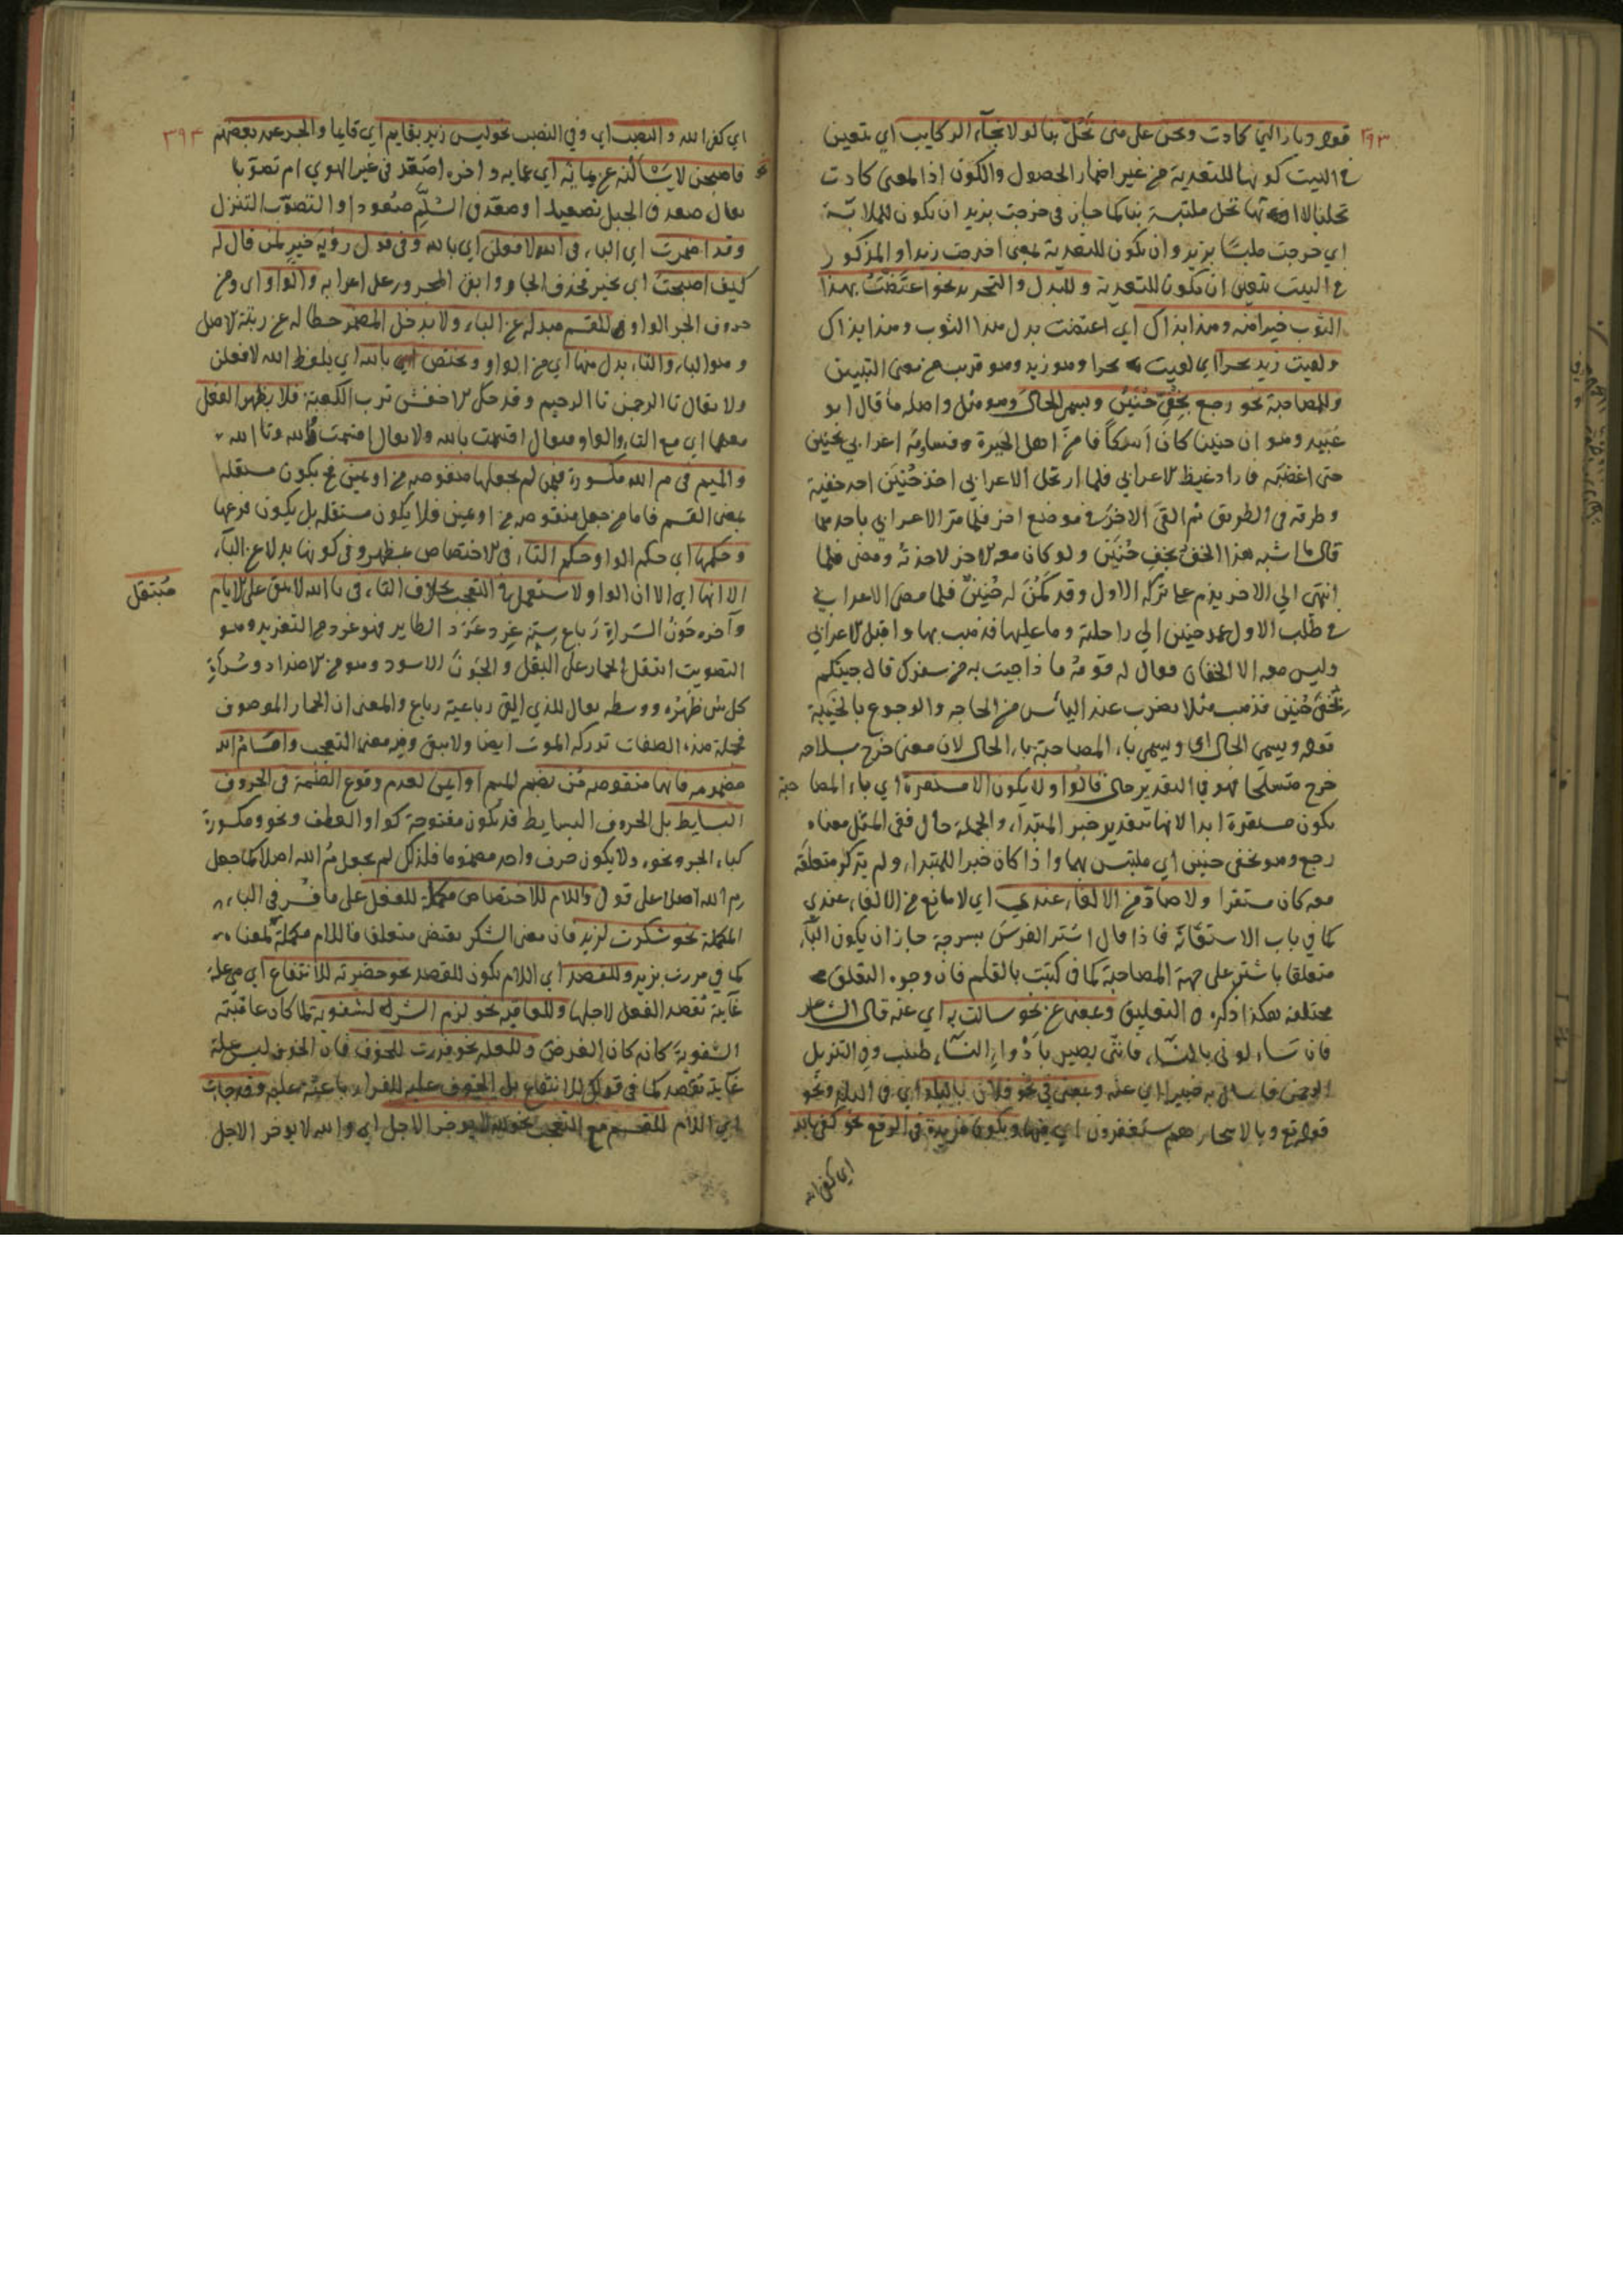 ٣٩٣
قوله ودار التي كادت ونحن على منى تحل بنا لولا نجاء الركايب اي يتعين
في البيت كونها للتعدية من غير اضمار الحصول والكون اذ المعنى كادت
تحلنا لا انها تحل ملتبسة بنا كما جاز في خرجت بزيد ان يكون للملابسة
اي خرجت ملتبسا بزيد وان يكون للتعدية بمعنى اخرجت زيدا والمذكور
في البيت يتعين ان يكون للتعدية وللبدل والتجريد نحو اعتضت بهذا
الثوب خيرا منه وهذا بذاك اي اعتضت بدل هذا الثوب وهذا بذاك
ولقيت زيد بحرا اي لقيت به بحرا وهو زيد وهو قريب من معنى التبيين
وللمصاحبة نحو رجع بخفي حنين ويسمى الحال وهو مثل واصله ما قال ابو
عبيد وهو ان حنينا كان اسكافا من اهل الحيرة فساومه اعرابي بخفين
حتى اغضبه فاراد غيظ الاعرابي فلما ارتحل الاعرابي اخذ حنين احد خفيه
وطرحه في الطريق ثم القى الاخر في موضع اخر فلما مر الاعرابي باحدهما
قال ما اشبه هذا الخف بخف حنين ولو كان معه الاخر لاخذته ومضى فلما
انتهى الى الاخر ندم على تركه الاول وقد كمن له حنين فلما مضى الاعرابي
في طلب الاول عمد حنين الى راحلته وما عليها فذهب بها واقبل الاعرابي
وليس معه الا الخفان فقال له قومه ماذا جيت به من سفرك قال جيتكم
بخفي حنين فذهب مثلا يضرب عند اليأس من الحاجة والرجوع بالخيبة
قوله ويسمى الحال اي ويسمى باء المصاحبة باء الحال لان معنى خرج بسلاحه
خرج متسلحا فهو في التقدير حال قالوا ولا يكون الا مستقرة اي باء المصاحبة
يكون مستقرة ابدا لانها بتقدير خبر المبتدا والجملة حال ففي المثل معناه
رجع وهو بخفي حنين اي ملتبس بهما واذا كان خبرا للمبتدا ولم يذكر متعلقه
معه كان مستقرا ولا صاد من الالغاء عندي اي لا مانع من الالغاء عندي
كما في باب الاستعانة فاذا قال اشتر الفرس بسرجه جاز ان يكون الباء
متعلقا باشتر على جهة المصاحبة كما في كتبت بالقلم فان وجوه التعلق
مختلفة هكذا ذكره في التعليق وبمعنى عن نحو سالت به اي عنه قال الشاعر
فان تساءلوني بالنساء فانني بصير بادواء النساء طبيب وفي التنزيل
الرحمن فاسال به خبيرا اي عنه وبمعنى في نحو فلان بالبلد اي في البلد ونحو
قوله تع وبالاسحار هم يستغفرون اي فيها ويكون مزيدة في الرفع نحو كفى بالله
اي كفى الله
٣٩٣
اي كفى الله والنصب اي وفي النصب نحو ليس زيد بقايم اي قايما والجر عند بعضهم
فاصبحن لا يسألنه عن بما به اي عما به واخره اصعد في غير الهوي ام تصوبا
يقال صعد في الجبل تصعيدا وصعد في السلم صعودا والتصوب التنزل
وقد اضمرت اي الباء في الله لافعلن اي بالله وفي قول رؤبة خير لمن قال له
كيف اصبحت اي بخير فحذف الجار وابقى المجرور على اعرابه والواو اي ومن
حروف الجر الواو وهي للقسم مبدلة عن الباء ولا يدخل المضمر حطا له عن رتبة الاصل
وهو الباء والتاء بدل منها اي من الواو ويختص بالله اي بلفظ الله لافعلن
ولا يقال تا الرحمن تا الرحيم وقد حكى الاخفش ترب الكعبة فلا يظهر الفعل
معهما اي مع التاء والواو فيقال اقسمت بالله ولا يقال اقسمت والله وتا الله
والميم في م الله مكسورة فيمن لم يجعلها منقوصة من او يمين فيكون مستقلة
بمعنى القسم فاما من جعل منقوصة من او يمين فلا يكون مستقلة بل يكون فرعها
وحكمها اي حكم الواو حكم التاء في الاختصاص بمظهر وفي كونها بدلا عن الباء
الا انها اي الا ان الواو لا يستعمل في التعجب بخلاف التاء في تا الله لا يبقى على الايام
مبتقل
وآخره جون السراة رباع سنه غرد غرد الطاير فهو غرد من التغريد وهو
التصويت ابتقل الحمار على البقل والجون الاسود وهو من الاضداد وسراة
كل شي ظهره ووسطه يقال للذي القى رباعيته رباع والمعنى ان الحمار الموصوف
بجملة هذه الصفات تدركه الموت ايضا ولا يبقى وفيه معنى التعجب واما م الله
مضمومة فانها منقوصة من بضم الميم او ايمن لعدم وقوع الضمة في الحروف
البسايط بل الحروف البسايط قد يكون مفتوحة كواو العطف ونحوه ومكسورة
كباء الجر ونحوه ولا يكون حرف واحد مضموما فلذلك لم يجعل م الله اصلا كما جعل
م الله اصلا على قول واللام للاختصاص مكملة للفعل على ما فسر في الباء
المكملة نحو شكرت لزيد فان معنى الشكر يقتضي متعلقا فاللام مكملة لمعناه
كما في مررت بزيد وللقصد اي اللام يكون للقصد نحو حضرته للانتفاع اي هي علة
غاية تقصد الفعل لاجلها وللعاقبة نحو لزم الشر للشقوة لما كان عاقبته
الشقوة كانه كان الغرض وللعلة نحو فررت للخوف فان الخوف ليس علة
غاية تقصد كما في قولك للانتفاع بل الخوف علة للفرار باعثة عليه وقد جاءت
اي اللام للقسم مع التعجب نحو لله لا يوخر الاجل اي والله لا يوخر الاجل